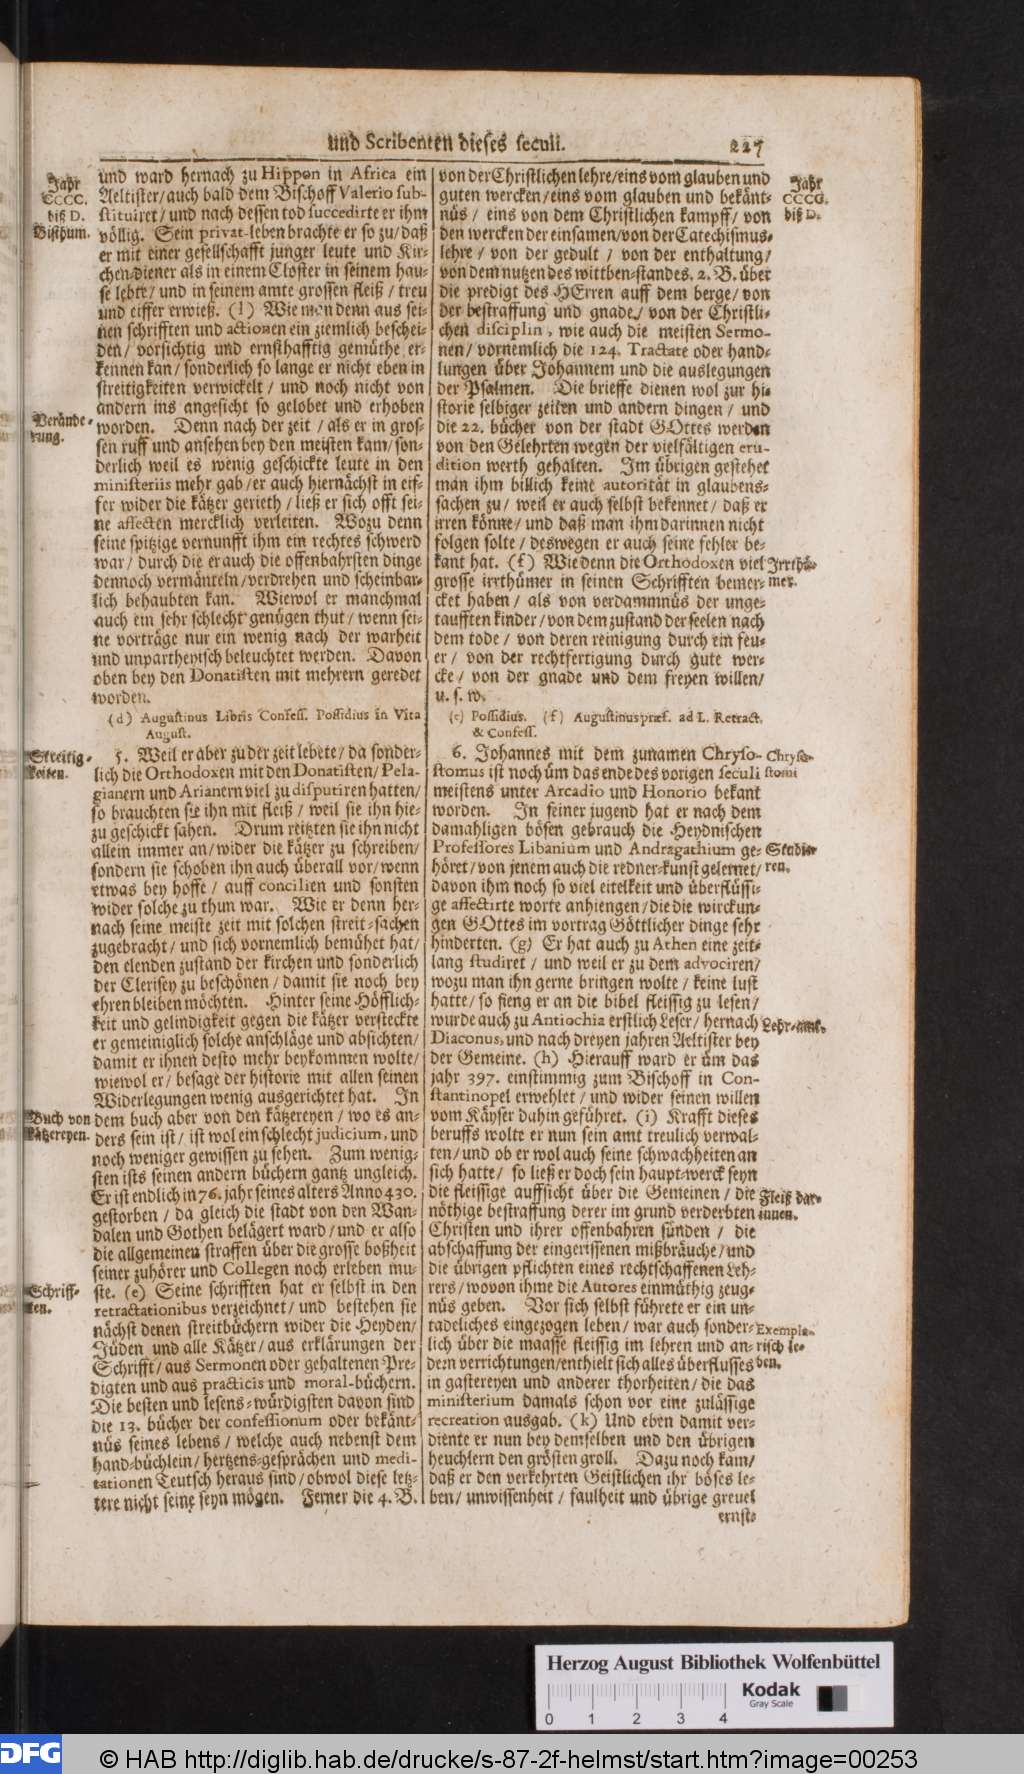 und Scribenten dieses seculi.
227
Jahr
CCCC.
biß D.
Bisthum.
und ward hernach zu Hippon in Africa ein
Aeltister/auch bald dem Bischoff Valerio sub-
stituiret/ und nach dessen tod succedirte er ihm
völlig. Sein privat-leben brachte er so zu/ daß
er mit einer gesellschafft junger leute und Kir-
chen-diener als in einem Closter in seinem hau-
se lebte/ und in seinem amte grossen fleiß/ treu
und eiffer erwieß. (d) Wie man denn aus sei-
nen schrifften und actionen ein ziemlich beschei-
den/ vorsichtig und ernsthafftig gemüthe er-
kennen kan/ sonderlich so lange er nicht eben in
streitigkeiten verwickelt/ und noch nicht von
andern ins angesicht so gelobet und erhoben
Verände-
rung.
worden. Denn nach der zeit/ als er in gros-
sen ruff und ansehen bey den meisten kam/ son-
derlich weil es wenig geschickte leute in den
ministeriis mehr gab/ er auch hiernächst in eif-
fer wider die kätzer gerieth/ ließ er sich offt sei-
ne affecten mercklich verleiten. Wozu denn
seine spitzige vernunfft ihm ein rechtes schwerd
war/ durch die er auch die offenbahrsten dinge
dennoch vermänteln/ verdrehen und scheinbar-
lich behaubten kan. Wiewol er manchmal
auch ein sehr schlecht genügen thut/ wenn sei-
ne vorträge nur ein wenig nach der warheit
und unpartheyisch beleuchtet werden. Davon
oben bey den Donatisten mit mehrern geredet
worden.
(d) Augustinus Libris Confess. Possidius in Vita
August.
Streitig-
keiten.
5. Weil er aber zu der zeit lebete/ da sonder-
lich die Orthodoxen mit den Donatisten/ Pela-
gianern und Arianern viel zu disputiren hatten/
so brauchten sie ihn mit fleiß/ weil sie ihn hie-
zu geschickt sahen. Drum reitzten sie ihn nicht
allein immer an/ wider die kätzer zu schreiben/
sondern sie schoben ihn auch überall vor/ wenn
etwas bey hoffe/ auff concilien und sonsten
wider solche zu thun war. Wie er denn her-
nach seine meiste zeit mit solchen streit-sachen
zugebracht/ und sich vornemlich bemühet hat/
den elenden zustand der kirchen und sonderlich
der Clerisey zu beschönen/ damit sie noch bey
ehren bleiben möchten. Hinter seine Höfflich-
keit und gelindigkeit gegen die kätzer versteckte
er gemeiniglich solche anschläge und absichten/
damit er ihnen desto mehr beykommen wolte/
wiewol er/ besage der historie mit allen seinen
Widerlegungen wenig ausgerichtet hat. In
Buch von
kätzereyen.
dem buch aber von den kätzereyen/ wo es an-
ders sein ist/ ist wol ein schlecht judicium, und
noch weniger gewissen zu sehen. Zum wenig-
sten ists seinen andern büchern gantz ungleich.
Er ist endlich in 76. jahr seines alters Anno 430.
gestorben/ da gleich die stadt von den Wan-
dalen und Gothen belägert ward/ und er also
die allgemeinen straffen über die grosse boßheit
seiner zuhörer und Collegen noch erleben mu-
Schriff-
ten.
ste. (e) Seine schrifften hat er selbst in den
retractationibus verzeichnet/ und bestehen sie
nächst denen streitbüchern wider die Heyden/
Jüden und alle Kätzer/ aus erklärungen der
Schrifft/ aus Sermonen oder gehaltenen Pre-
digten und aus practicis und moral-büchern.
Die besten und lesens-würdigsten davon sind
die 13. bücher der confessionum oder bekänt-
nüs seines lebens/ welche auch nebenst dem
hand-büchlein/ hertzens-gesprächen und medi-
tationen Teutsch heraus sind/ obwol diese letz-
tere nicht seine seyn mögen. Ferner die 4. B.
Jahr
CCCC.
biß D.
von der Christlichen lehre/ eins vom glauben und
guten wercken/ eins vom glauben und bekänt-
nüs/ eins von dem Christlichen kampff/ von
den wercken der einsamen/ von der Catechismus-
lehre/ von der gedult/ von der enthaltung/
von dem nutzen des wittben-standes. 2. B. über
die predigt des HErren auff dem berge/ von
der bestraffung und gnade/ von der Christli-
chen disciplin, wie auch die meisten Sermo-
nen/ vornemlich die 124. Tractate oder hand-
lungen über Johannem und die auslegungen
der Psalmen. Die brieffe dienen wol zur hi-
storie selbiger zeiten und andern dingen/ und
die 22. bücher von der stadt GOttes werden
von den Gelehrten wegen der vielfältigen eru-
dition werth gehalten. Im übrigen gestehet
man ihm billich keine autorität in glaubens-
sachen zu/ weil er auch selbst bekennet/ daß er
irren könne/ und daß man ihm darinnen nicht
folgen solte/ deswegen er auch seine fehler be-
kant hat. (f) Wie denn die Orthodoxen viel
Irrthü-
mer.
grosse irrthümer in seinen Schrifften bemer-
cket haben/ als von verdammnüs der unge-
taufften kinder/ von dem zustand der seelen nach
dem tode/ von deren reinigung durch ein feu-
er/ von der rechtfertigung durch gute wer-
cke/ von der gnade und dem freyen willen/
u. s. w.
(e) Possidius. (f) Augustinus præf. ad L. Retract.
& Confess.
6. Johannes mit dem zunamen Chryso-
Chryso-
stomi
stomus ist noch üm das ende des vorigen seculi
meistens unter Arcadio und Honorio bekant
worden. In seiner jugend hat er nach dem
damahligen bösen gebrauch die Heydnischen
Professores Libanium und Andragathium ge-
Studie-
ren.
höret/ von jenem auch die redner-kunst gelernet/
davon ihm noch so viel eitelkeit und überflüssi-
ge affectirte worte anhiengen/ die die wirckun-
gen GOttes im vortrag Göttlicher dinge sehr
hinderten. (g) Er hat auch zu Athen eine zeit-
lang studiret/ und weil er zu dem advociren/
wozu man ihn gerne bringen wolte/ keine lust
hatte/ so fieng er an die bibel fleissig zu lesen/
wurde auch zu Antiochia erstlich Leser/ hernach
Lehr-amt.
Diaconus, und nach dreyen jahren Aeltister bey
der Gemeine. (h) Hierauff ward er üm das
jahr 397. einstimmig zum Bischoff in Con-
stantinopel erwehlet/ und wider seinen willen
vom Käyser dahin geführet. (i) Krafft dieses
beruffs wolte er nun sein amt treulich verwal-
ten/ und ob er wol auch seine schwachheiten an
sich hatte/ so ließ er doch sein haupt-werck seyn
die fleissige auffsicht über die Gemeinen/ die
Fleiß dar-
innen.
nöthige bestraffung derer im grund verderbten
Christen und ihrer offenbahren sünden/ die
abschaffung der eingerissenen mißbräuche/ und
die übrigen pflichten eines rechtschaffenen Leh-
rers/ wovon ihme die Autores einmüthig zeug-
nüs geben. Vor sich selbst führete er ein un-
tadeliches eingezogen leben/ war auch sonder-
Exempla-
risch le-
ben.
lich über die maasse fleissig im lehren und an-
dern verrichtungen/ enthielt sich alles überflusses
in gastereyen und anderer thorheiten/ die das
ministerium damals schon vor eine zulässige
recreation ausgab. (k) Und eben damit ver-
diente er nun bey demselben und den übrigen
heuchlern den grösten groll. Dazu noch kam/
daß er den verkehrten Geistlichen ihr böses le-
ben/ unwissenheit/ faulheit und übrige greuel
ernst-
Herzog August Bibliothek Wolfenbüttel
Kodak
Gray Scale
0 1 2 3 4
DFG
© HAB http://diglib.hab.de/drucke/s-87-2f-helmst/start.htm?image=00253